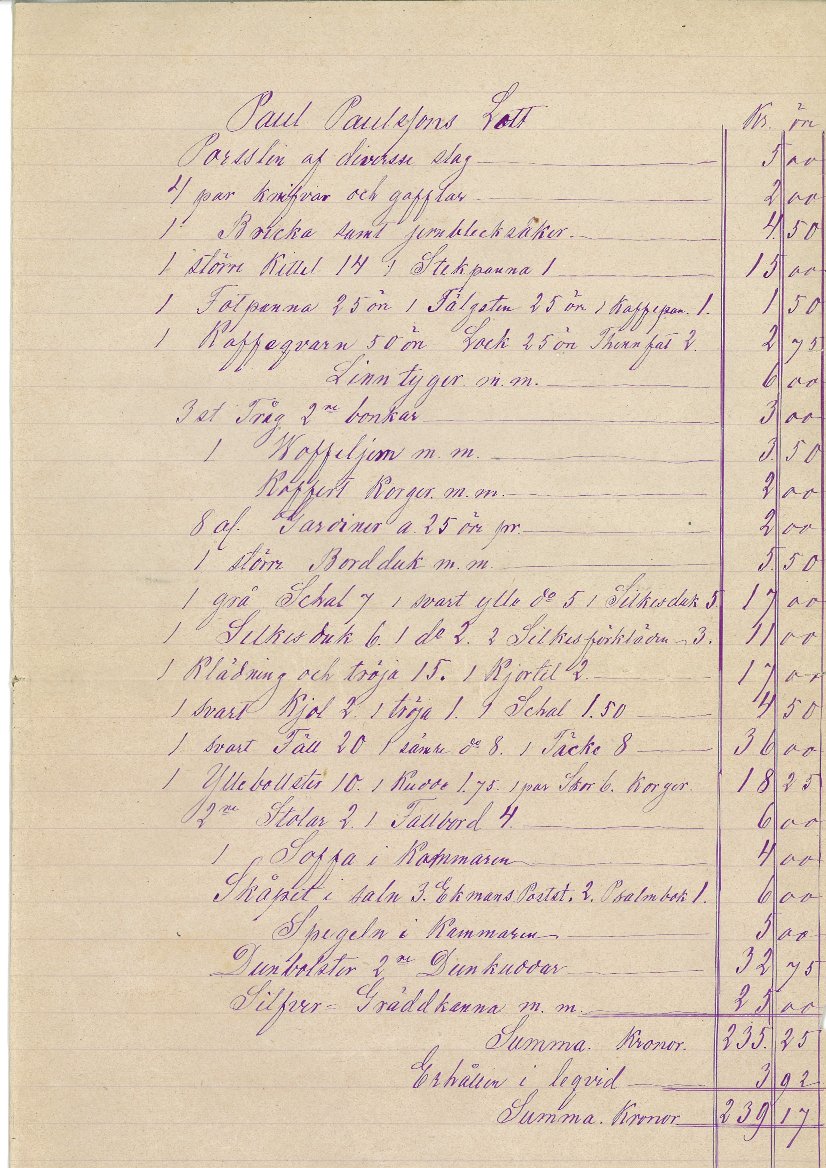 Paul Paulssons Lott Kr. öre
Porsslin af diverse slag 5 00
4 par knifvar och gafflar 2 00
1 Bricka samt jernblecksaker 4 50
1 större Kittel 14 1 Stekpanna 1 15 00
1 Fotpanna 25 öre 1 Tälgsten 25 öre 1 Kaffepan. 1. 1 50
1 Kaffeqvarn 50 öre Lock 25 öre Thennfat 2 2 75
Linntyger m.m. 6 00
3 st Tråg 2ne bonkar 3 00
1 Woffeljern m.m. 3 50
Koffert Korger m.m. 2 00
8 al. Gardiner a. 25 öre pr. 2 00
1 större Bordduk m.m. 5 50
1 grå Schal 7 1 svart ylle do 5 1 Silkesduk 5. 17 00
1 Silkesduk 6. 1 do 2. 2 Silkesförkläden 3. 11 00
1 Klädning och tröja 15. 1 Kjortel 2 17 00
1 svart Kjol 2. 1 tröja 1. 1 Schal 1.50 4 50
1 svart Fäll 20 1 sämre do 8. 1 Täcke 8 36 00
1 Yllebollster 10. 1 Kudde 1.75. 1 par Skor 6. Korger. 18 25
2ne Stolar 2. 1 Fallbord 4. 6 00
1 Soffa i Kammaren 4 00
Skåpet i saln 3. Ekmans Postst. 2. Psalmbok 1. 6 00
Spegeln i Kammaren 5 00
Dunbolster 2ne Dunkuddar 32 75
Silfver- Gräddkanna m.m. 25 00
Summa. Kronor. 235. 25
Erhållen i leqvid 3 92
Summa. Kronor 239 17